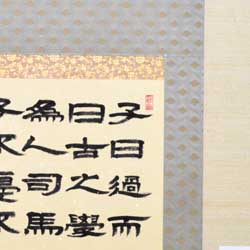 子曰過而
曰古之學
為人司馬
子不憂不